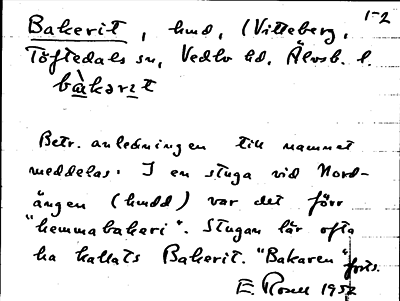 1-2
Bakerit, hmd, (Vitteberg,
Töftedals sn, Vedbo hd, Älvsb. l.
bàkərit
Betr. anledningen till namnet
meddelas: I en stuga vid Nord-
ängen (hmdd) var det förr
"hemmabakeri". Stugan lär ofta
ha kallats Bakerit. "Bakaren" forts.
E. Rosell 1952